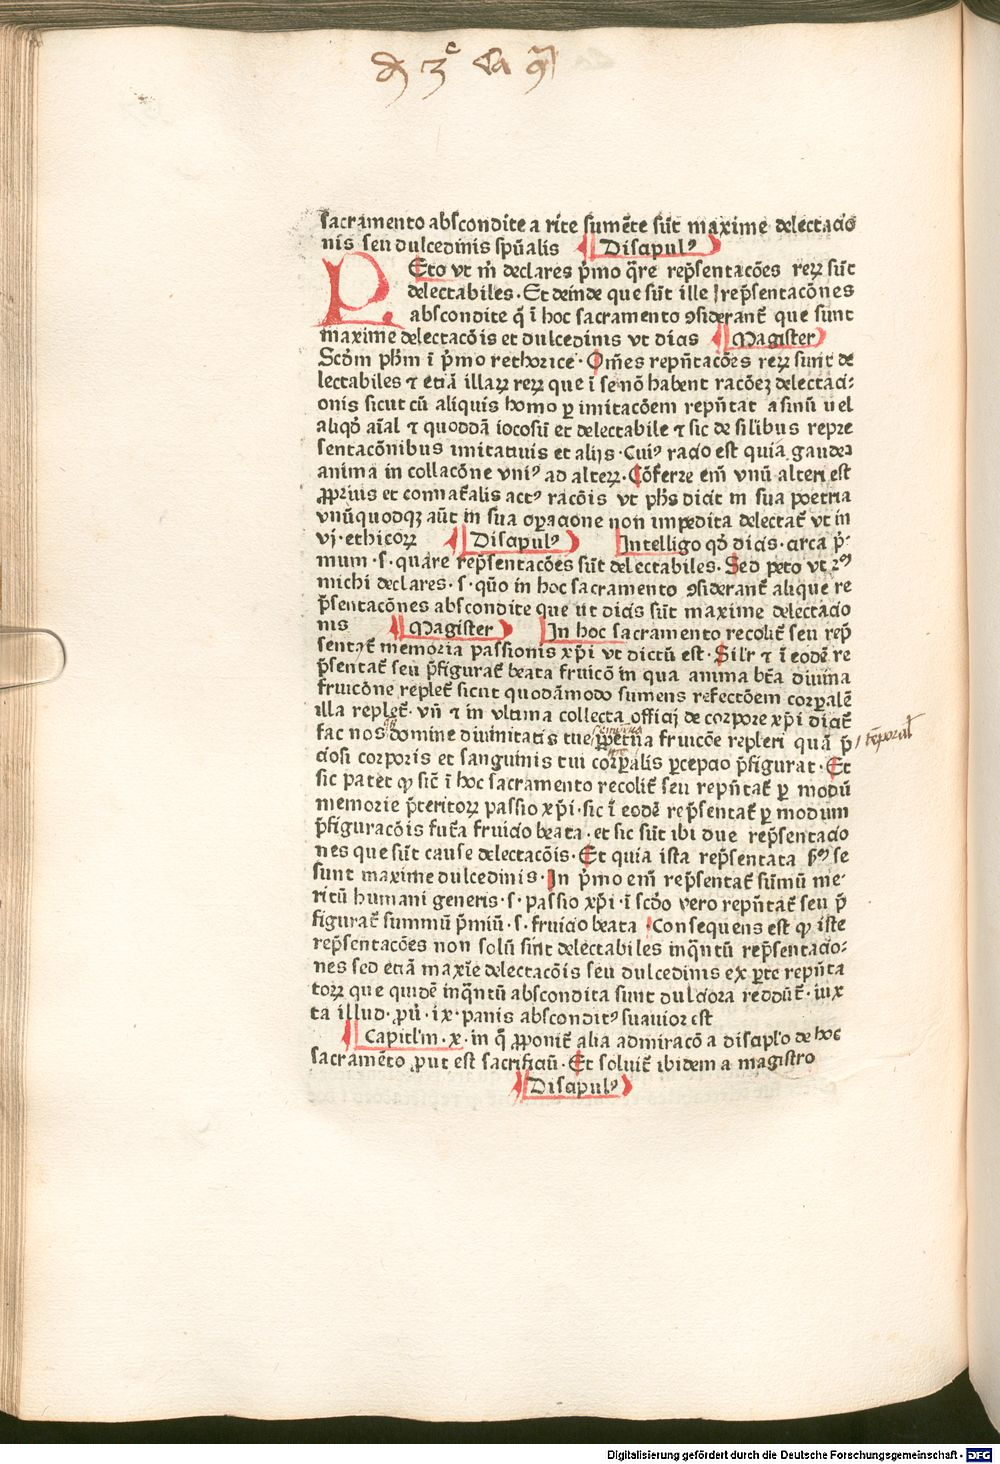 sacramento abscondite a rite sumēte sūt maxime delectacio
nis seu dulcedinis spūalis Discipulꝰ
PEto vt m̄ declares p̄mo q̄re rep̄sentacōes reꝝ sūt
delectabiles. Et deinde que sūt ille rep̄sentacōnes
abscondite q̄ ī hoc sacramento ꝯsiderant̄ que sunt
maxime delectacōis et dulcedinis vt dicis Magister
Scd̄m ph̄m ī p̄mo rethorice. Om̄es repn̄tacōes reꝝ sunt de
lectabiles ⁊ etiā illaꝝ reꝝ que ī se nō habent racōeꝫ delectaci-
onis sicut cū aliquis homo ꝑ imitacōem repn̄tat asinū uel
aliqd̄ aīal ⁊ quoddā iocosū et delectabile ⁊ sic de silibus repre
sentacōnibus imitatiuis et alijs. Cuiꝰ racio est quia gaudeꝫ
anima in collacōne vniꝰ ad alteꝝ. Cōferre em̄ vnū alteri est
ꝓprius et connat̄alis actꝰ racōis vt ph̄s dicit in sua poetria
vnūquodqꝫ aūt in sua oꝑacione non impedita delectat̄ vt in
vj. ethicoꝝ Discipulꝰ Intelligo qd̄ dicis. circa p̄-
mum. s. quare rep̄sentacōes sūt delectabiles. Sed peto vt
michi declares. s. qūo in hoc sacramento ꝯsiderant̄ alique re
p̄sentacōnes abscondite que ut dicis sūt maxime delectacio
nis Magister In hoc sacramento recolit̄ seu rep̄
sentat̄ memoria passionis xp̄i vt dictū est. Sil'r ⁊ ī eodē re
p̄sentat̄ seu p̄figurat̄ beata fruicō in qua anima bt̄a diuina
fruicōne replet̄ sicut quodāmodo sumens refectōem corꝑalē
illa replet̄. vn̄ ⁊ in vltima collecta officij de corpore xp̄i dicit̄
fac nos domine diuinitatis tue ꝑpetua fruicōe repleri quā p̄ temporal'
ciosi corporis et sanguinis tui corꝑalis ꝑcepcio p̄figurat. Et
sic patet ꝙ sic̄ ī hoc sacramento recolit̄ seu repn̄tat̄ ꝑ modū
memorie p̄teritoꝝ passio xp̄i. sic ī eodē rep̄sentat̄ ꝑ modum
p̄figuracōis fut̄a fruicio beata. et sic sūt ibi due rep̄sentacio
nes que sūt cause delectacōis. Et quia ista rep̄sentata se
sunt maxime dulcedinis. In p̄mo em̄ rep̄sentat̄ sūmū me-
ritū humani generis. s. passio xp̄i. ī scd̄o vero repn̄tat̄ seu p̄
figurat̄ summū p̄miū. s. fruicio beata Consequens est ꝙ iste
rep̄sentacōes non solū sint delectabiles inq̄ntū rep̄sentacio-
nes sed etiā maxīe delectacōis seu dulcedinis ex ꝑte repn̄ta
toꝝ que quidē inq̄ntū abscondita sunt dulciora reddūt̄. iux
ta illud. ꝓū. ix. panis absconditꝰ suauior est
Capitl'm. x. in q̄ ꝓponit̄ alia admiracō a discipl'o de hoc
sacramēto ꝓut est sacrificiū. Et soluit̄ ibidem a magistro
Discipulꝰ
Digitalisierung gefördert durch die Deutsche Forschungsgemeinschaft - DFG